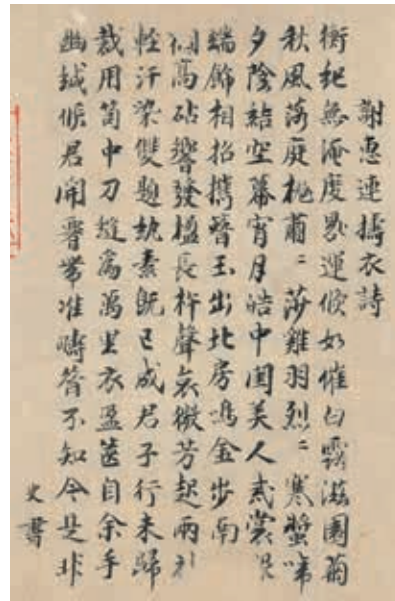 謝惠連擣衣詩
衡紀無淹度晷運倏如催白露滋園菊
秋風落庭槐肅〻莎雞羽烈〻寒螿啼
夕陰結空幕宵月皓中閨美人戒裳服
端飾相招攜簪玉出北房鳴金步南
櫚高砧響發楹長杵聲哀微芳起兩袖
輕汗染雙題紈素既已成君子行未歸
裁用笥中刀縫為萬里衣盈篋自余手
幽緘候君開腰帶准疇昔不知今是非
書